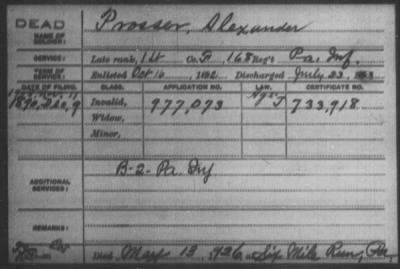 DEAD
NAME OF SOLDIER: Prosser, Alexander
SERVICE: Late rank, 1 Lt Co. F, 168 Reg't Pa. Inf.
TERM OF SERVICE: Enlisted Oct 16, 1862 Discharged July 23, 1863
DATE OF FILING. CLASS. APPLICATION NO. LAW. CERTIFICATE NO.
1890, Dec, 9 Invalid, 977,073 733,918
Widow,
Minor,
ADDITIONAL SERVICES: B-2- Pa. Inf
REMARKS:
Died May 13, 1926 at Six Mile Run, Pa,